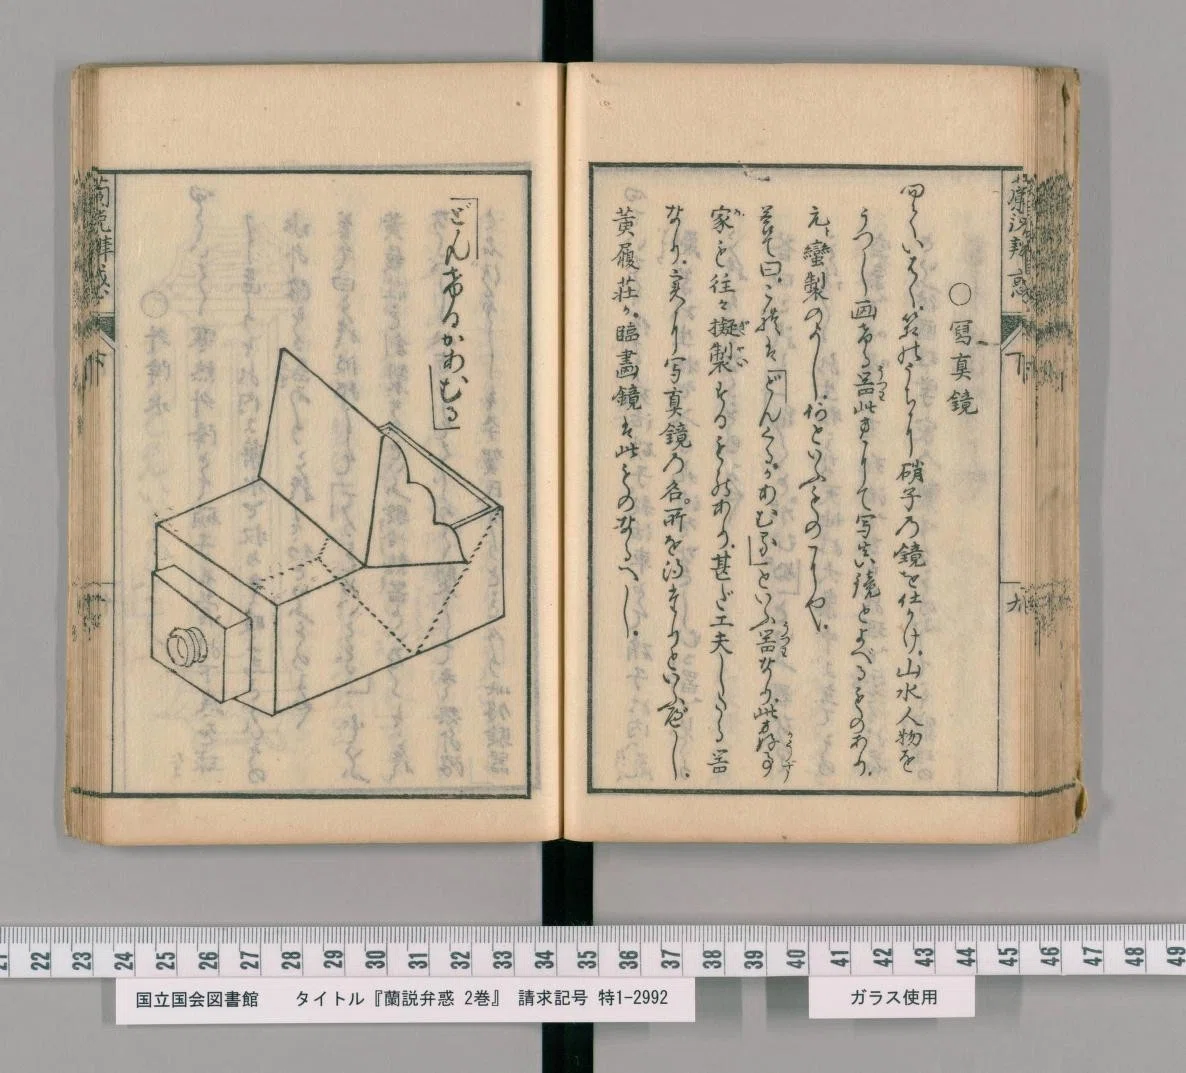 蘭説辨惑
下
九
○寫真鏡
問ていはく、箱のうちに硝子の鏡を仕かけ、山水人物を
うつし画ける器此
にて写真鏡とよべるものあり、
元、蠻製のよし、何といふものにや、
答て曰、これは「どんくるかあむる」といふ器なり、此方好事
家にも往々擬製するものあり、甚だ工夫したる器
なり、実に写真鏡の名。所を得たりといふべし、
黄履荘が臨畫鏡は此ものなるべし。
「どんけるかあむる」
蘭説辨惑
下
21 22 23 24 25 26 27 28 29 30 31 32 33 34 35 36 37 38 39 40 41 42 43 44 45 46 47 48 49
国立国会図書館 タイトル『蘭説弁惑 2巻』 請求記号 特1-2992
ガラス使用